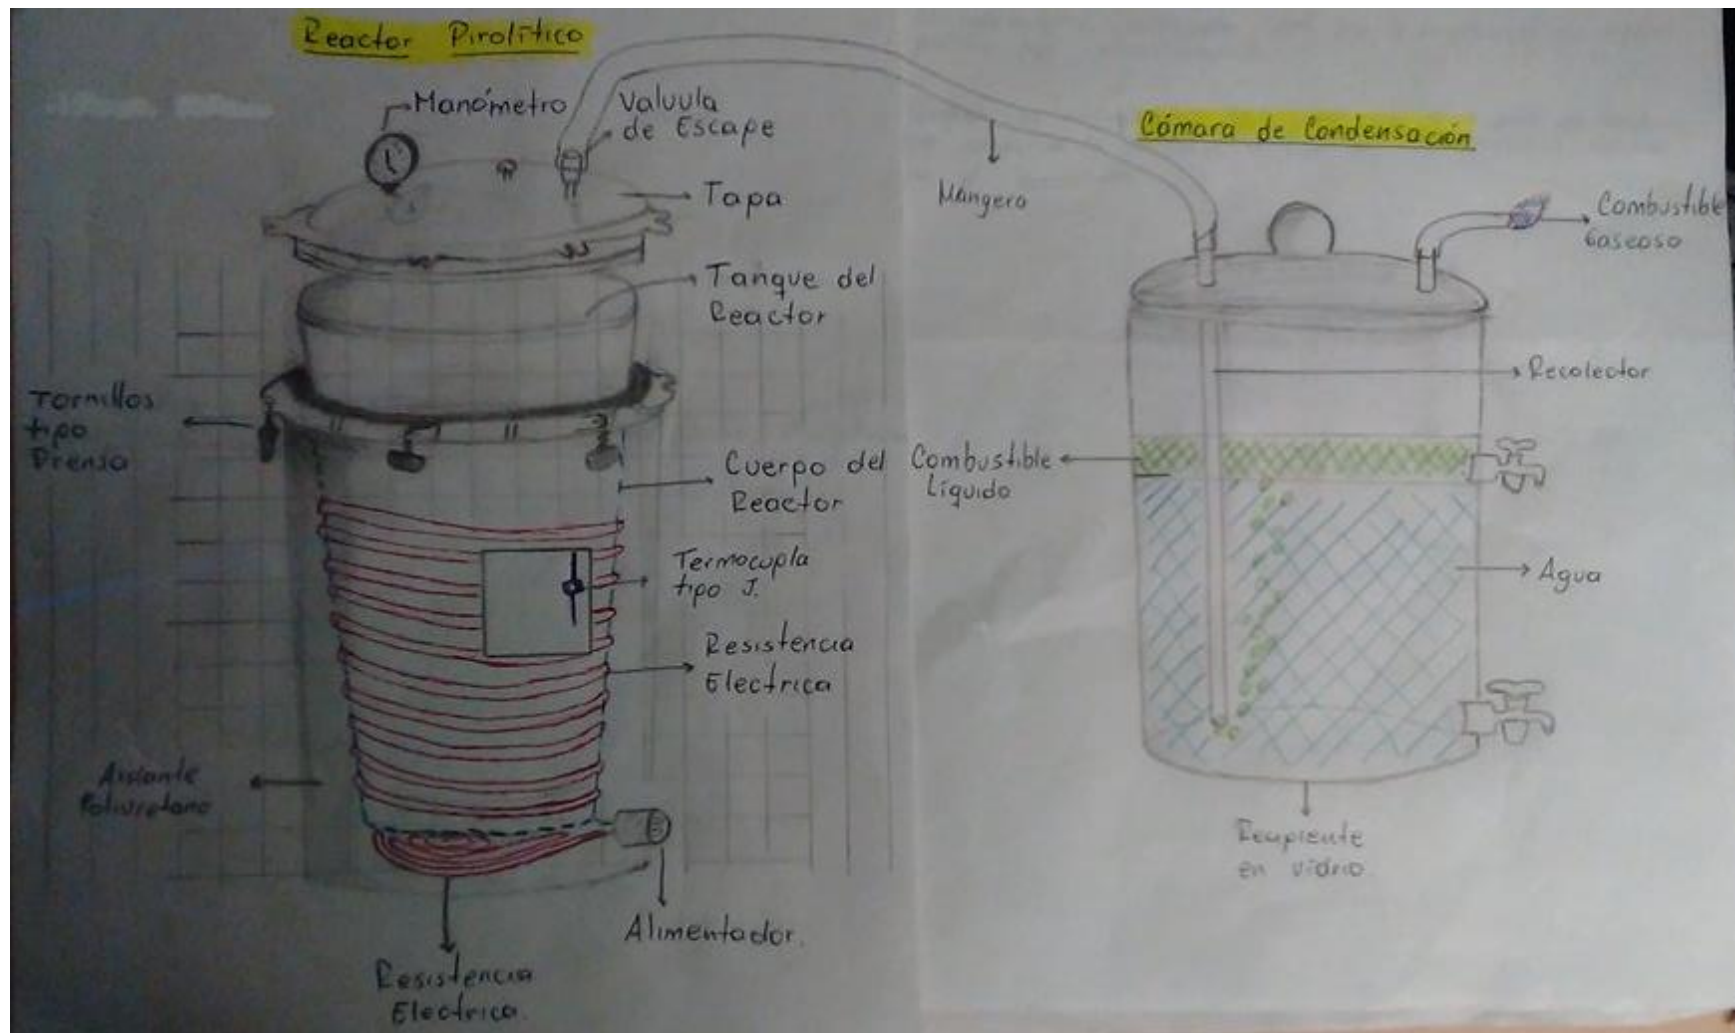 Reactor Pirolítico
Manómetro
Valvula
de Escape
Tapa
Tanque del
Reactor
Tornillos
tipo
Prensa
Cuerpo del
Reactor
Termocupla
tipo J.
Resistencia
Electrica
Aislante
Poliuretano
Alimentador.
Resistencia
Electrica.
Mangera
Cámara de Condensación
Combustible
Gaseoso
Recolector
Combustible
Líquido
Agua
Recipiente
en vidrio.